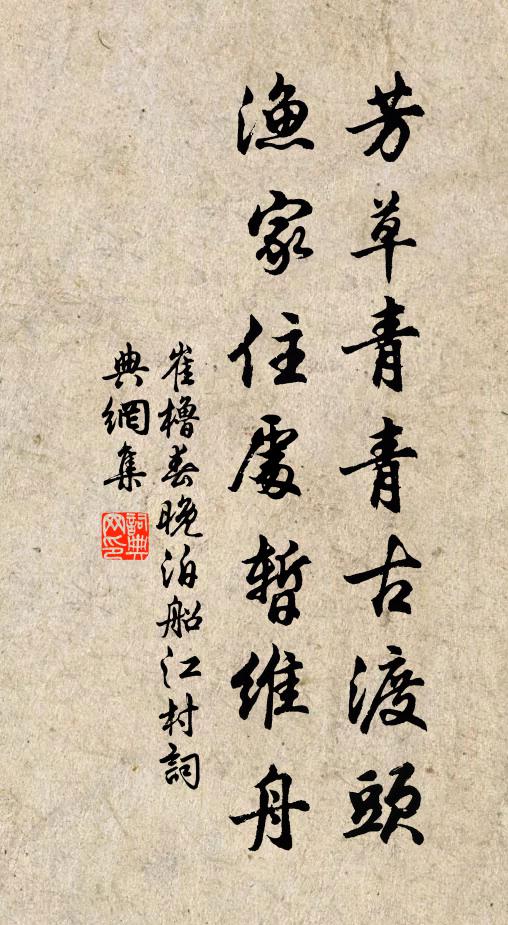 芳草青青古渡頭
漁家住處暫維舟
崔櫓春晚泊船江村詞
典網集
詞典
网印